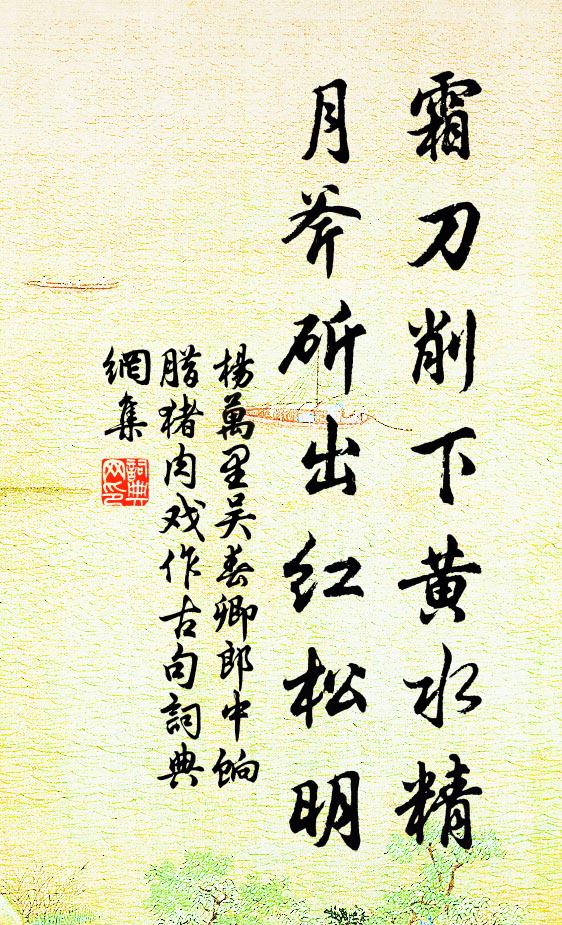 霜刀削下黄水精
月斧斫出红松明
楊萬里吴春卿郎中餉
腊猪肉戏作古句詞典
網集
詞典网印